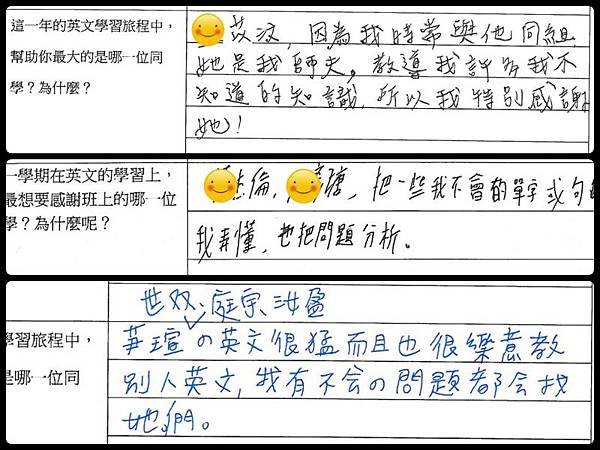 這一年的英文學習旅程中,
幫助你最大的是哪一位同
學?為什麼?
苡汶,因為我時常與他同組,
她是我師丈,教導我許多我不
知道的知識,所以我特別感謝
她!
一學期在英文的學習上,
最想要感謝班上的哪一位
學?為什麼呢?
倫, 把一些我不會的單字或句
我弄懂,也把問題分析。
學習旅程中,
是哪一位同
世双、庭宇、汝盈
苹瑄の英文很猛而且也很樂意教
別人英文,我有不会の問題都会找
她們。